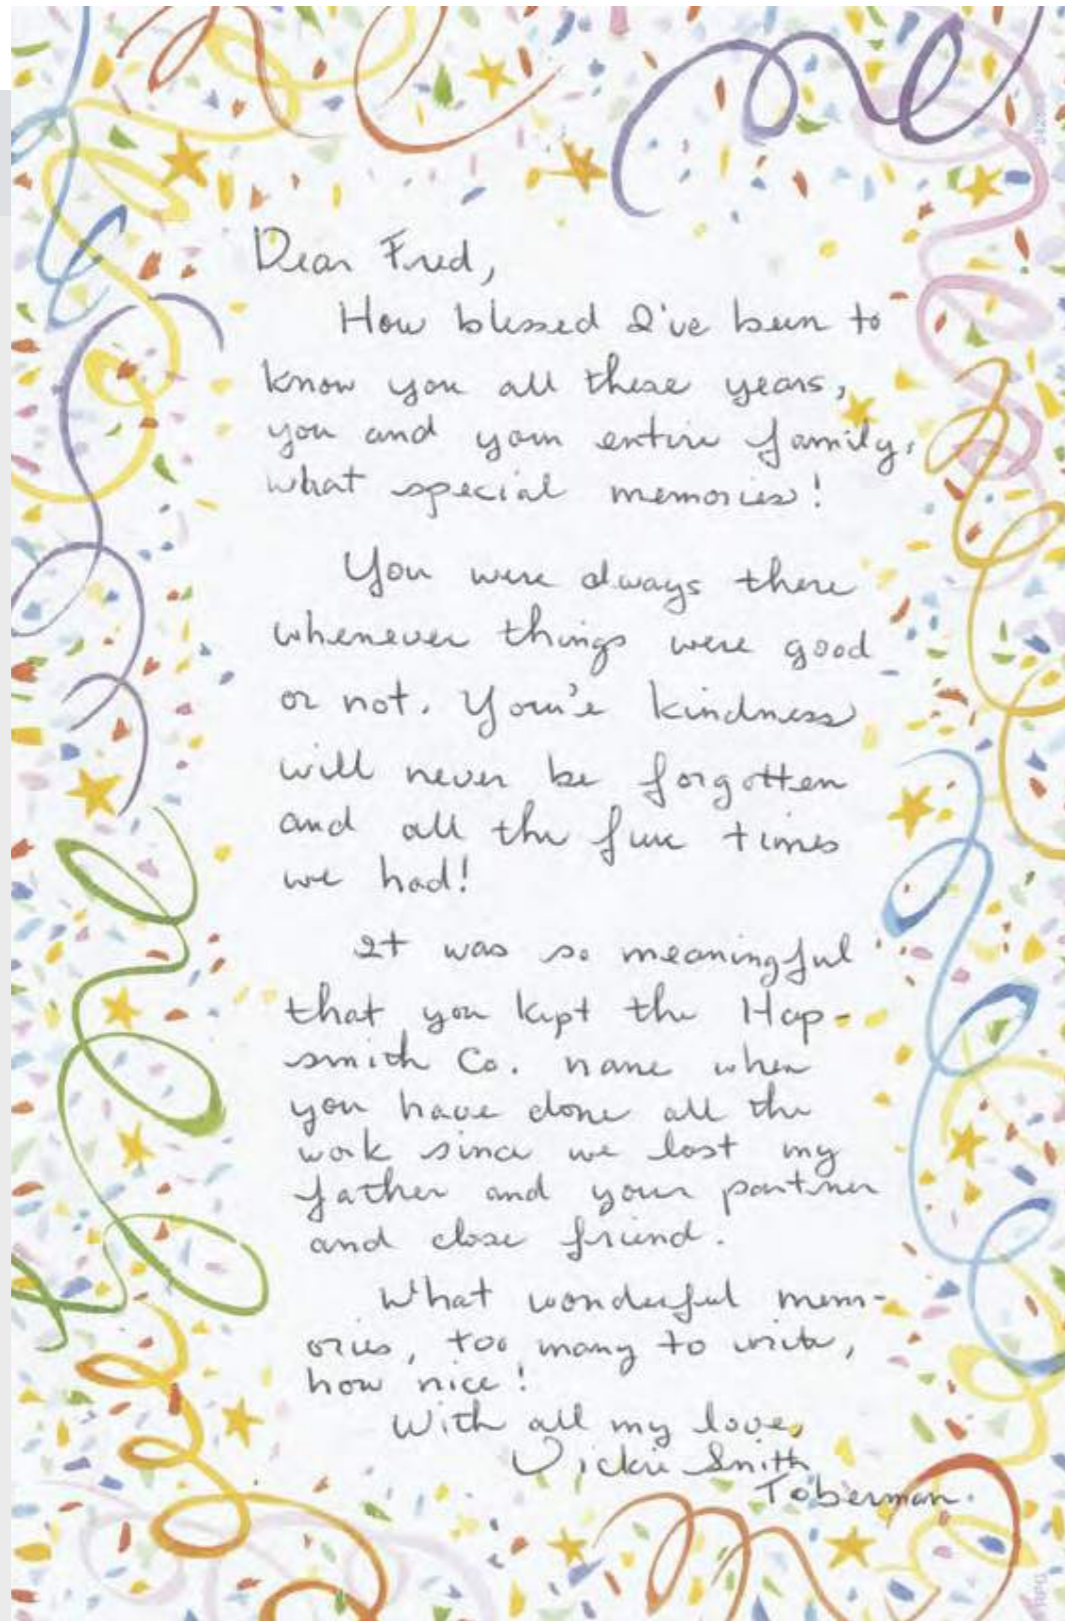 Dear Fred,
How blessed I've been to
know you all these years,
you and your entire family,
what special memories!
You were always there
whenever things were good
or not. Your'e kindness
will never be forgotten
and all the fun times
we had!
It was so meaningful
that you kept the Hap-
smith Co. name when
you have done all the
work since we lost my
father and your partner
and close friend.
What wonderful mem-
ories, too many to write,
how nice!
With all my love,
Vickie Smith
Toberman